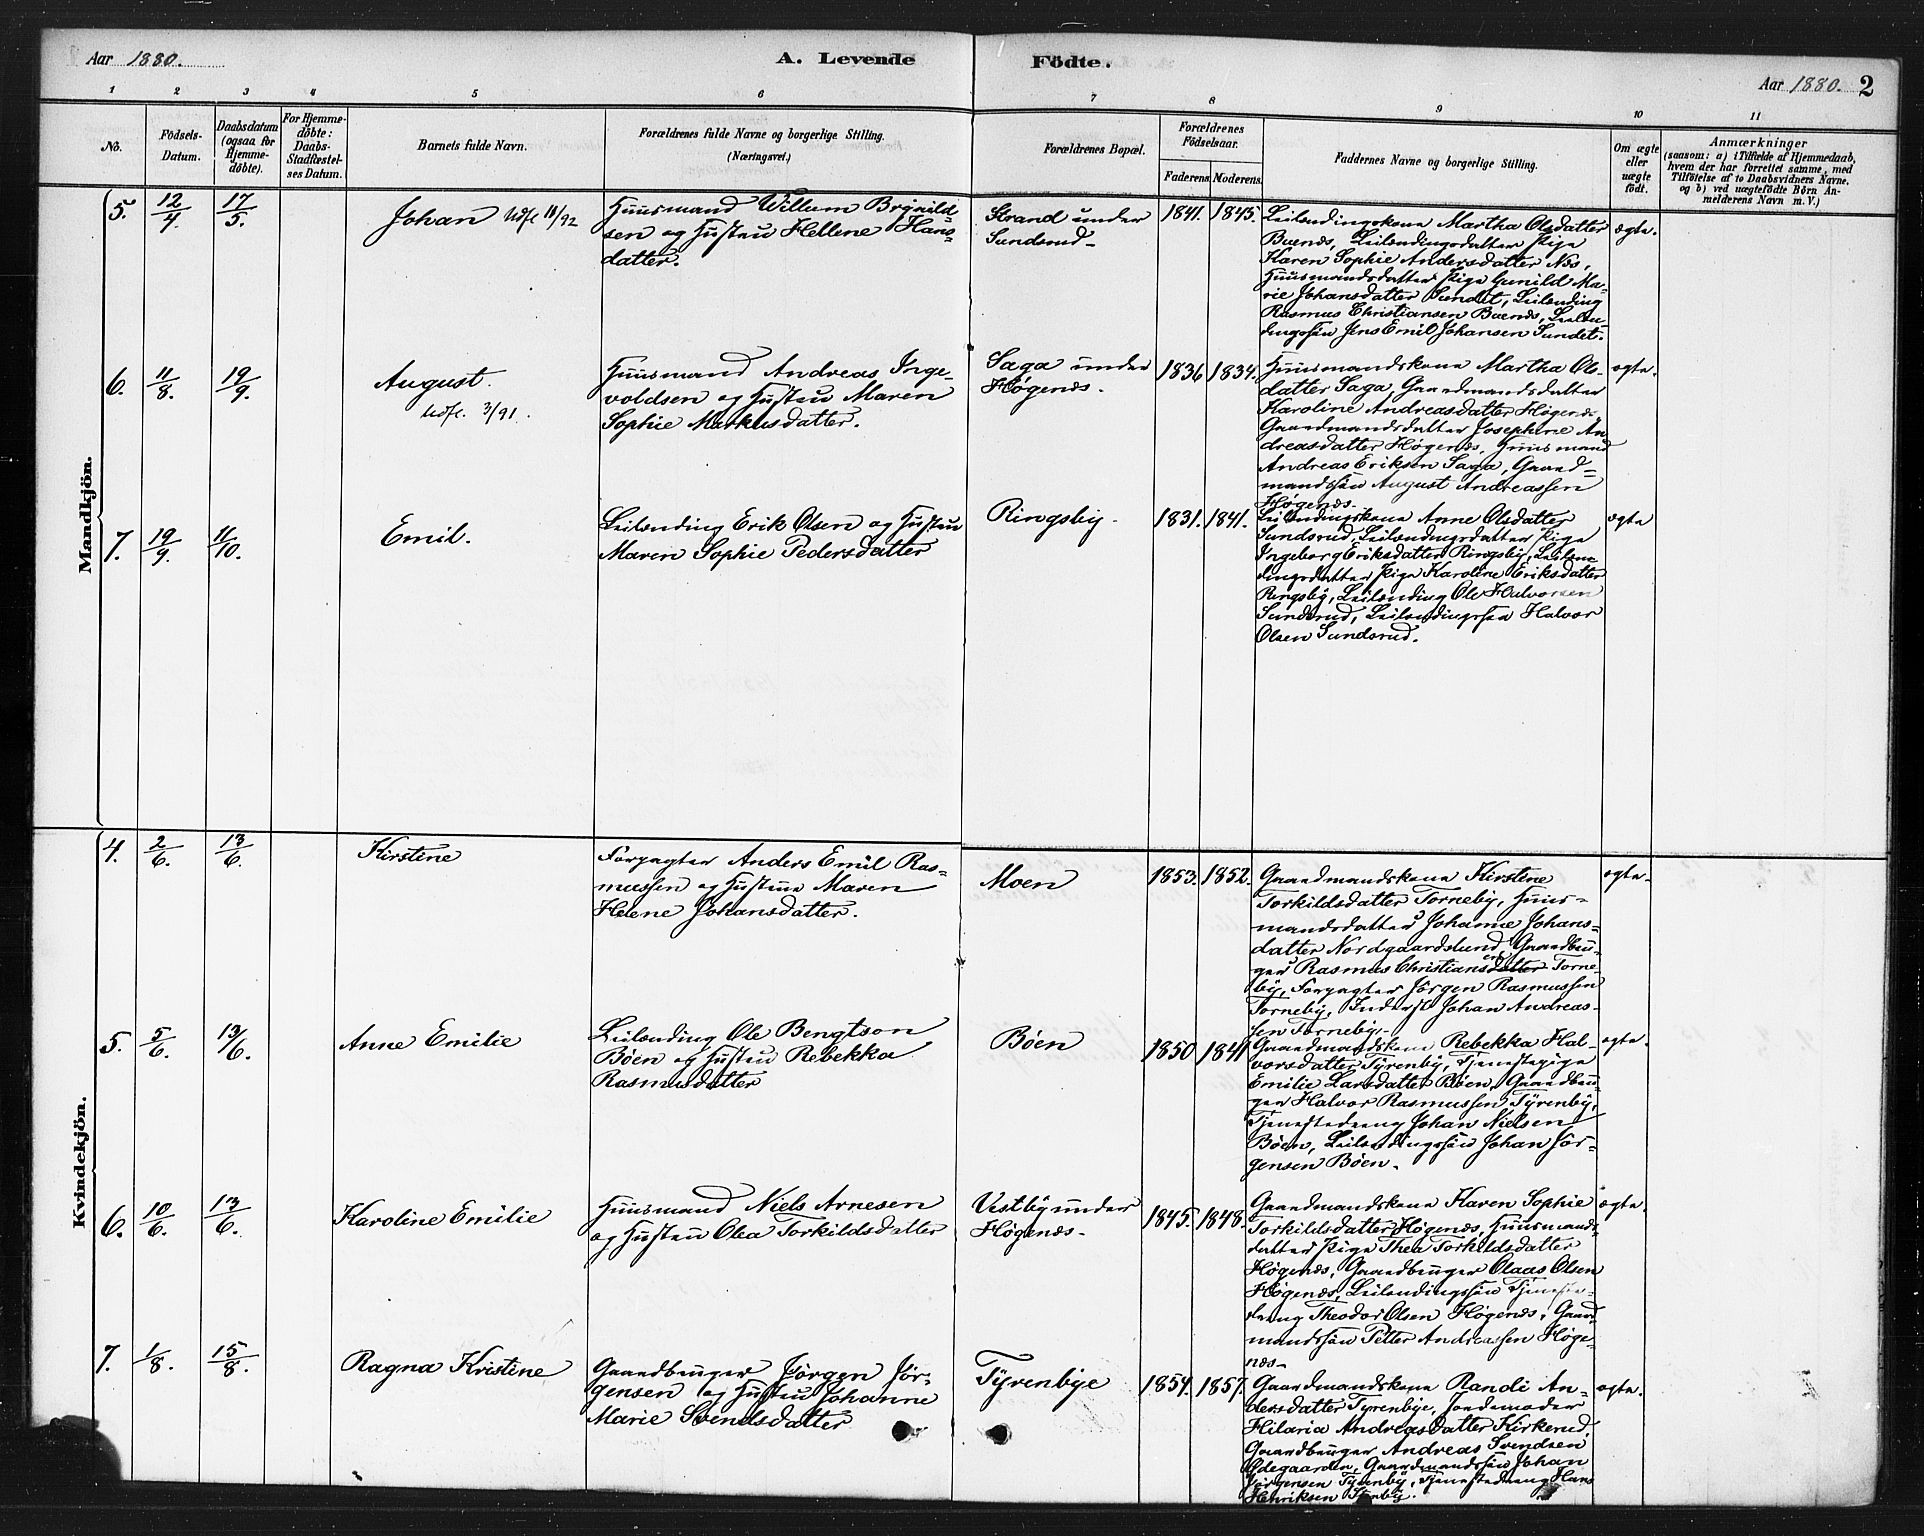 Aar 1880.
A. Levende Födte.
Aar 1880. 2
1 2 3 4 5 6 7 8 9 10 11
No.
Födsels-
Datum.
Daabsdatum
(ogsaa for
Hjemme-
döbte).
For Hjemme-
döbte:
Daabs-
Stadfæstel-
ses Datum.
Barnets fulde Navn.
Forældrenes fulde Navne og borgerlige Stilling.
(Næringsvei.)
Forældrenes Bopæl.
Forældrenes
Födselsaar.
Faderens. Moderens.
Faddernes Navne og borgerlige Stilling.
Om ægte
eller
uægte
födt.
Anmærkninger
(saasom: a) i Tilfælde af Hjemmedaab,
hvem der har forrettet samme, med
Tilföielse af to Daabsvidners Navne,
og b) ved uægtefödte Börn An-
melderens Navn m. V.)
Mandkjön.
5. 12/4. 17/5.
Johan Udfl 18/92
Huusmand Willum Brynild
sen og Hustru Hellene Hans-
datter.
Strand under
Sundsrud
1841. 1845.
Leilændingskone Martha Olsdatter
Buenæs, Leilændingsdatter Pige
Karen Sophie Andersdatter Næs,
Huusmandsdatter Pige Gunild Ma-
rie Johansdatter Sundet, Leilænding
Rasmus Christiansen Buenæs, Leilæn-
dingssøn Jens Emil Johansen Sundet.
ægte.
6. 11/8. 19/9.
August.
Udfl. 3/91.
Huusmand Andreas Inge-
voldsen og Hustru Maren
Sophie Markusdatter.
Saga under
Høgenæs.
1836 1834.
Huusmandskone Martha Ols-
datter Saga, Gaardmandsdatter
Karoline Andreasdatter Høgenæs
Gaardmandsdatter Josephine An
dreasdatter Høgenæs, Huusmand
Andreas Eriksen Saga, Gaard-
mandssøn August Andreassen
Høgenæs.
ægte.
7. 19/9. 11/10.
Emil.
Leilænding Erik Olsen og Hustru
Maren Sophie Pedersdatter
Ringsby.
1831. 1841.
Leilændingskone Anne Olsdatter
Sundsrud, Leilændingsdatter Pige
Ingeborg Eriksdatter Ringsby, Leilæn-
dingsdatter Pige Karoline Eriksdatter
Ringsby, Leilænding Ole Halvorsen
Sundsrud, Leilændingssøn Halvor
Olsen Sundsrud.
ægte
Kvindekjön.
4. 2/6. 13/6.
Kirstine
Forpagter Anders Emil Ras-
mussen og Hustru Maren
Helene Johansdatter.
Moen
1853. 1852.
Gaardmandskone Kirstine
Torkildsdatter Torneby, Huus-
mandsdatter Johanne Johans-
datter Nordgaardslund, Gaardbru-
ger Rasmus Christiansdatter Torne-
by, Forpagter Jörgen Rasmussen
Torneby, Inderst Johan Andreas-
sen Torneby.
ægte.
5. 5/6. 13/6.
Anne Emilie
Leilænding Ole Bengtson
Böen og Hustru Rebekka
Rasmusdatter
Böen
1850 1841
Gaardmandskone Rebekka Hal-
vorsdatter Tyrenby, Tjenestepige
Emilie Larsdatter Böen, Gaardbru-
ger Halvor Rasmussen Tyrenby,
Tjenestedreng Johan Nielsen
Böen, Leilændingssøn Johan Jör-
gensen Böen.
ægte.
6. 10/6. 13/6.
Karoline Emilie
Huusmand Niels Arnesen
og Hustru Olea Torkildsdatter
Vestby under
Høgenæs.
1845. 1848.
Gaardmandskone Karen Sophie
Torkildsdatter Høgenæs, Huusmands-
datter Pige Thea Torkildsdatter
Høgenæs, Gaardbruger Olaas Olsen
Høgenæs, Leilændingssøn Tjeneste-
dreng Theodor Olsen Høgenæs, Gaard
mandssøn Petter Andreassen Høge-
næs
ægte.
7. 1/8. 15/8.
Ragna Kristine
Gaardbruger Jörgen Jör-
gensen og Hustru Johanne
Marie Svendsdatter
Tyrenbye
1854. 1857.
Gaardmandskone Randi An-
dersdatter Tyrenbye, Jordemoder
Hilaria Andreasdatter Kirkerud
Gaardbruger Andreas Svendsen
Ødegaarden, Gaardmandssøn Johan
Jörgensen Tyrenby, Tjenestedreng Hans
Henriksen
ægte.